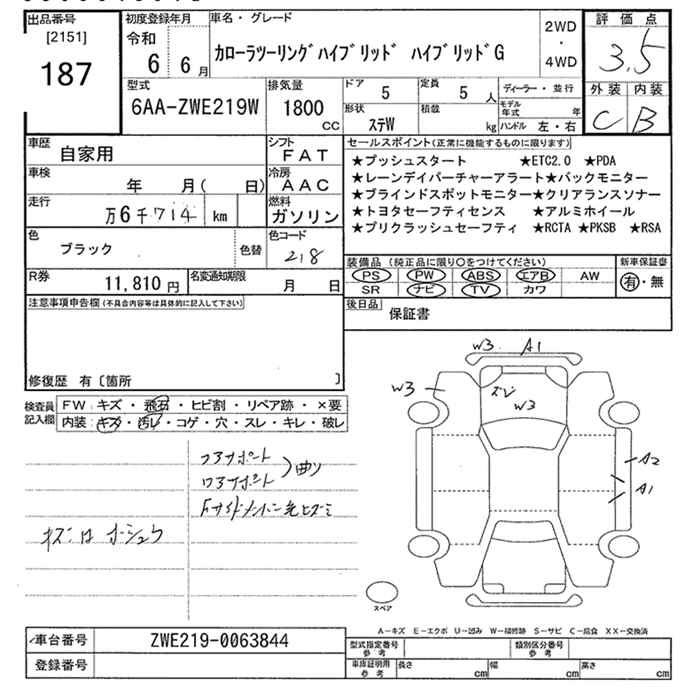 出品番号
[2151]
187
初度登録年月
令和
6 6月
車名・グレード
カローラツーリングハイブリッド ハイブリッドG
2WD
・
4WD
評価点
3.5
外装 内装
C B
型式
6AA-ZWE219W
排気量
1800
CC
ドア
5
定員
5 人
形状
ステW
積載
kg
ディーラー・並行
モデル年式 年
ハンドル 左・右
車歴
自家用
シフト
FAT
車検
年 月( 日)
冷房
AAC
走行
万6千714 km
燃料
ガソリン
色
ブラック
色替
色コード
218
R券
11,810 円
名変通知期限
月 日
セールスポイント(正常に機能するものに限ります)
★プッシュスタート ★ETC2.0 ★PDA
★レーンデイパーチャーアラート★バックモニター
★ブラインドスポットモニター★クリアランスソナー
★トヨタセーフティセンス ★アルミホイール
★プリクラッシュセーフティ ★RCTA ★PKSB ★RSA
装備品 (純正品に限り○をつけてください)
PS PW ABS エアB AW
SR ナビ TV カワ
新車保証書
有・無
後日品
保証書
注意事項申告欄(不具合内容等は具体的に記入して下さい)
修復歴 有〔箇所 〕
検査員記入欄
FW:キズ・飛石・ヒビ割・リペア跡・×要
内装:キズ・汚レ・コゲ・穴・スレ・キレ・破レ
コアサポート
ロアサポート
曲り
キズ
W3 A1
W3
W3
A2
A1
スペア
A-キズ E-エクボ U-凹み W-補修跡 S-サビ C-腐食 XX-交換済
車台番号
ZWE219-0063844
登録番号
型式指定番号
参考
類別区分番号
参考
車庫証明用
参考
長さ cm
幅 cm
高さ cm